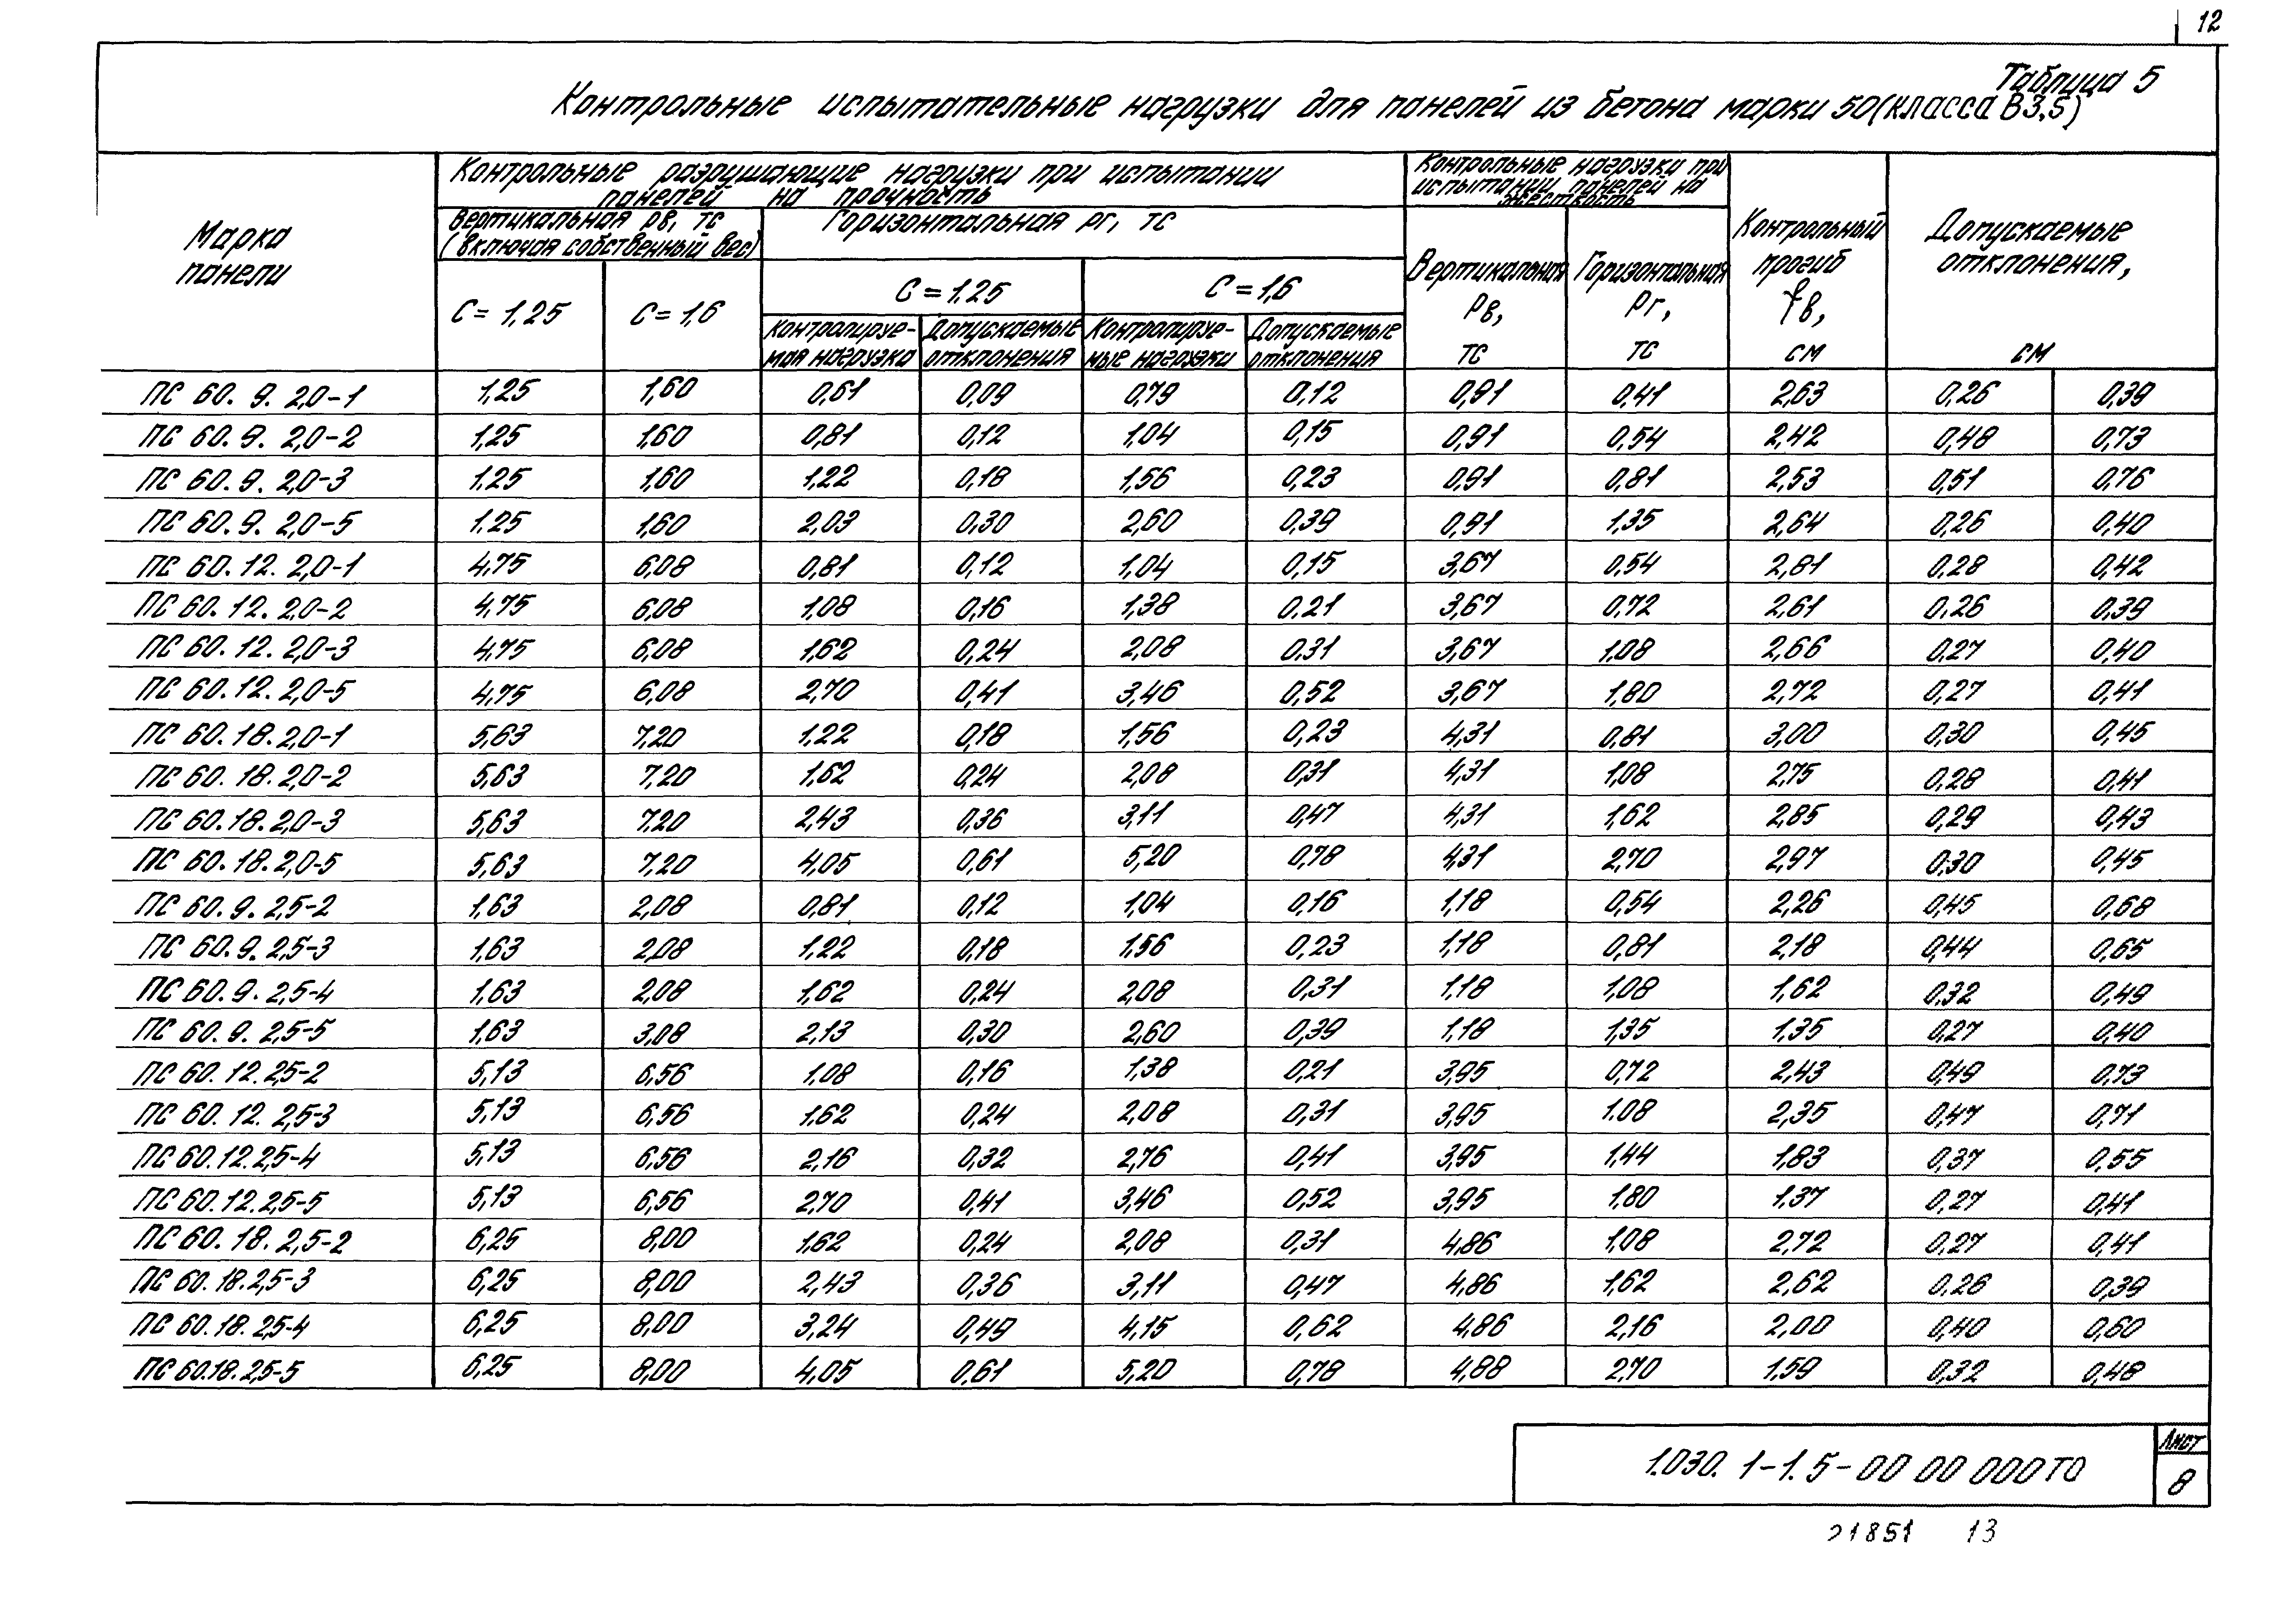 12
Таблица 5
Контрольные испытательные нагрузки для панелей из бетона марки 50 (класса В3,5)
Марка панели
Контрольные разрушающие нагрузки при испытании панелей на прочность
Контрольные нагрузки при испытании панелей на жесткость
Контрольный прогиб fв, см
Допускаемые отклонения, см
Вертикальная Рв, тс (включая собственный вес)
Горизонтальная Рг, тс
Вертикальная Рв, тс
Горизонтальная Рг, тс
С = 1,25
С = 1,6
С = 1,25
С = 1,6
Контролируемая нагрузка
Допускаемые отклонения
Контролируемые нагрузки
Допускаемые отклонения
ПС 60. 9. 2,0-1 1,25 1,60 0,61 0,09 0,79 0,12 0,91 0,41 2,63 0,26 0,39
ПС 60. 9. 2,0-2 1,25 1,60 0,81 0,12 1,04 0,15 0,91 0,54 2,42 0,48 0,73
ПС 60. 9. 2,0-3 1,25 1,60 1,22 0,18 1,56 0,23 0,91 0,81 2,53 0,51 0,76
ПС 60. 9. 2,0-5 1,25 1,60 2,03 0,30 2,60 0,39 0,91 1,35 2,64 0,26 0,40
ПС 60. 12. 2,0-1 4,75 6,08 0,81 0,12 1,04 0,15 3,67 0,54 2,81 0,28 0,42
ПС 60. 12. 2,0-2 4,75 6,08 1,08 0,16 1,38 0,21 3,67 0,72 2,61 0,26 0,39
ПС 60. 12. 2,0-3 4,75 6,08 1,62 0,24 2,08 0,31 3,67 1,08 2,66 0,27 0,40
ПС 60. 12. 2,0-5 4,75 6,08 2,70 0,41 3,46 0,52 3,67 1,80 2,72 0,27 0,41
ПС 60. 18. 2,0-1 5,63 7,20 1,22 0,18 1,56 0,23 4,31 0,81 3,00 0,30 0,45
ПС 60. 18. 2,0-2 5,63 7,20 1,62 0,24 2,08 0,31 4,31 1,08 2,75 0,28 0,41
ПС 60. 18. 2,0-3 5,63 7,20 2,43 0,36 3,11 0,47 4,31 1,62 2,85 0,29 0,43
ПС 60. 18. 2,0-5 5,63 7,20 4,05 0,61 5,20 0,78 4,31 2,70 2,97 0,30 0,45
ПС 60. 9. 2,5-2 1,63 2,08 0,81 0,12 1,04 0,16 1,18 0,54 2,26 0,45 0,68
ПС 60. 9. 2,5-3 1,63 2,08 1,22 0,18 1,56 0,23 1,18 0,81 2,18 0,44 0,65
ПС 60. 9. 2,5-4 1,63 2,08 1,62 0,24 2,08 0,31 1,18 1,08 1,62 0,32 0,49
ПС 60. 9. 2,5-5 1,63 3,08 2,13 0,30 2,60 0,39 1,18 1,35 1,35 0,27 0,40
ПС 60. 12. 2,5-2 5,13 6,56 1,08 0,16 1,38 0,21 3,95 0,72 2,43 0,49 0,73
ПС 60. 12. 2,5-3 5,13 6,56 1,62 0,24 2,08 0,31 3,95 1,08 2,35 0,47 0,71
ПС 60. 12. 2,5-4 5,13 6,56 2,16 0,32 2,76 0,41 3,95 1,44 1,83 0,37 0,55
ПС 60. 12. 2,5-5 5,13 6,56 2,70 0,41 3,46 0,52 3,95 1,80 1,37 0,27 0,41
ПС 60. 18. 2,5-2 6,25 8,00 1,62 0,24 2,08 0,31 4,86 1,08 2,72 0,27 0,41
ПС 60. 18. 2,5-3 6,25 8,00 2,43 0,36 3,11 0,47 4,86 1,62 2,62 0,26 0,39
ПС 60. 18. 2,5-4 6,25 8,00 3,24 0,49 4,15 0,62 4,86 2,16 2,00 0,40 0,60
ПС 60.18. 2,5-5 6,25 8,00 4,05 0,61 5,20 0,78 4,88 2,70 1,59 0,32 0,48
1.030. 1-1. 5-00 00 000 ТО
Лист
8
21851 13